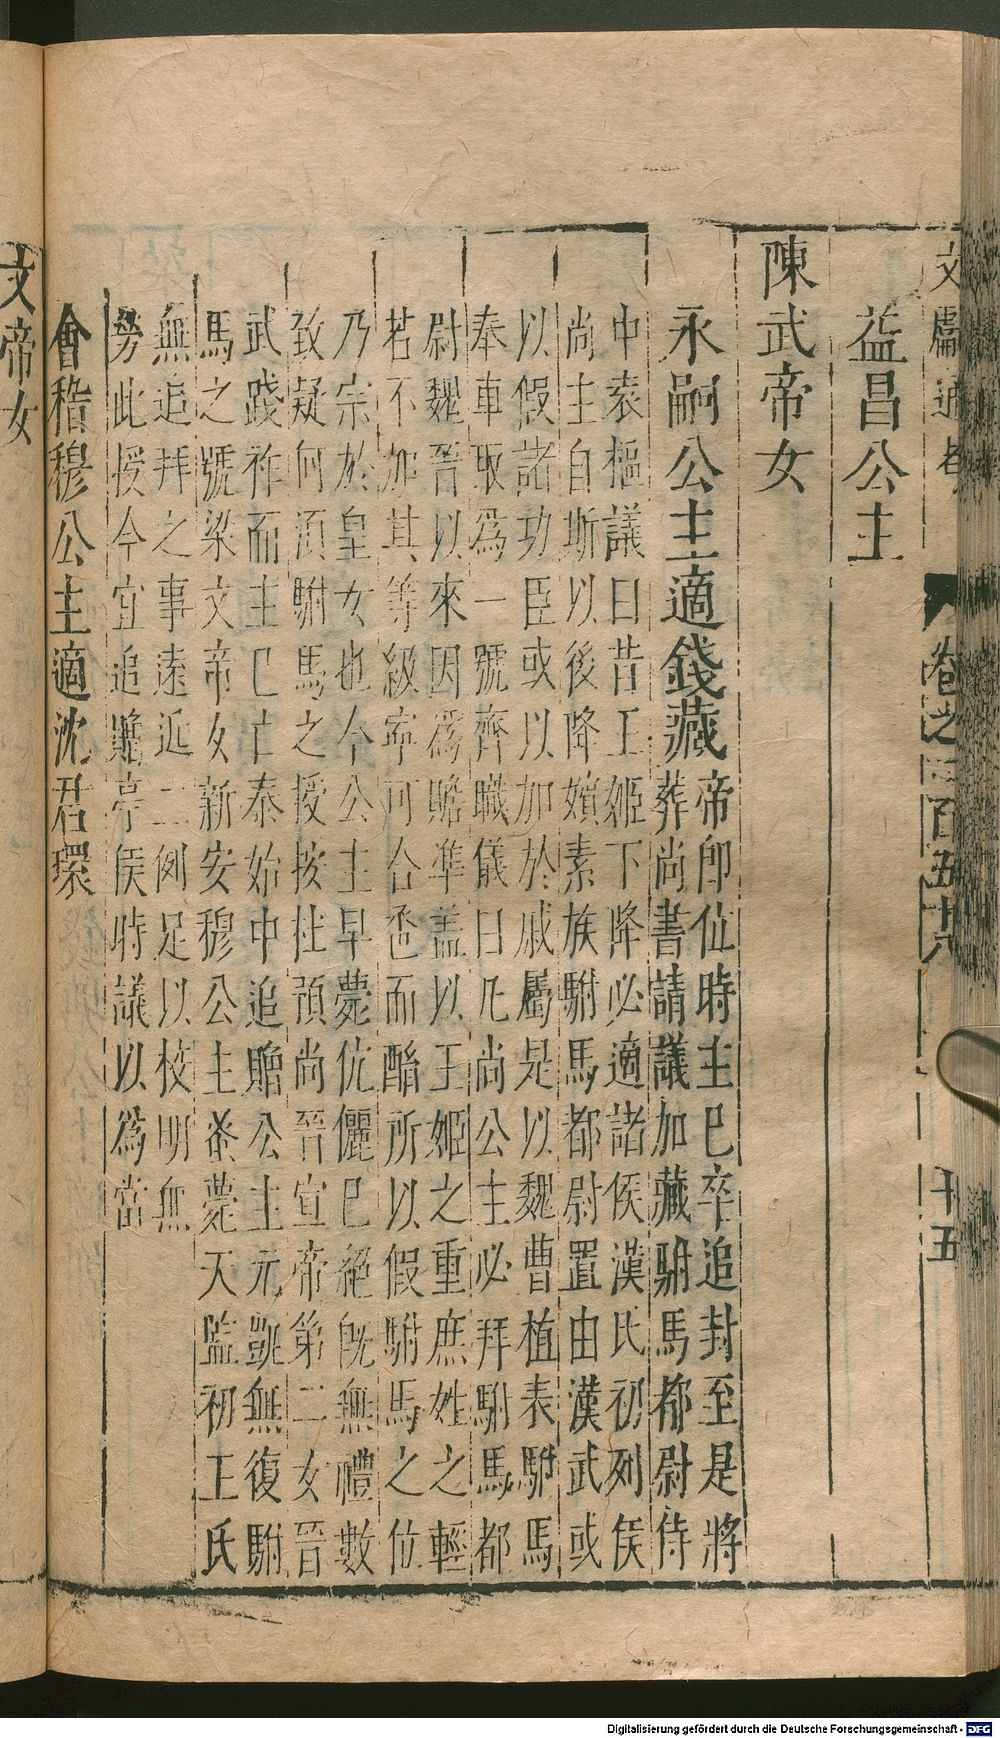 文獻通考 卷之二百五十八 十五
益昌公主
陳武帝女
永嗣公主適錢藏
帝即位時主已卒追封至是將
葬尚書請議加藏駙馬都尉侍
中袁樞議曰昔王姬下降必適諸侯漢氏初列侯
尚主自斯以後降嬪素族駙馬都尉置由漢武或
以假諸功臣或以加於戚屬是以魏曹植表駙馬
奉車取為一號齊職儀曰凡尚公主必拜駙馬都
尉魏晉以來因為瞻準蓋以王姬之重庶姓之輕
若不加其等級寧可合卺而酳所以假駙馬之位
乃崇於皇女也今公主早薨伉儷已絕既無禮數
致疑何須駙馬之授按杜預尚晉宣帝第二女晉
武踐祚而主已亡泰始中追贈公主元凱無復駙
馬之號梁文帝女新安穆公主蚤薨天監初王氏
無追拜之事遠近二例足以校明無
勞此授今宜追贈亭侯時議以為當
會稽穆公主適沈君環
文帝女
Digitalisierung gefördert durch die Deutsche Forschungsgemeinschaft - DFG